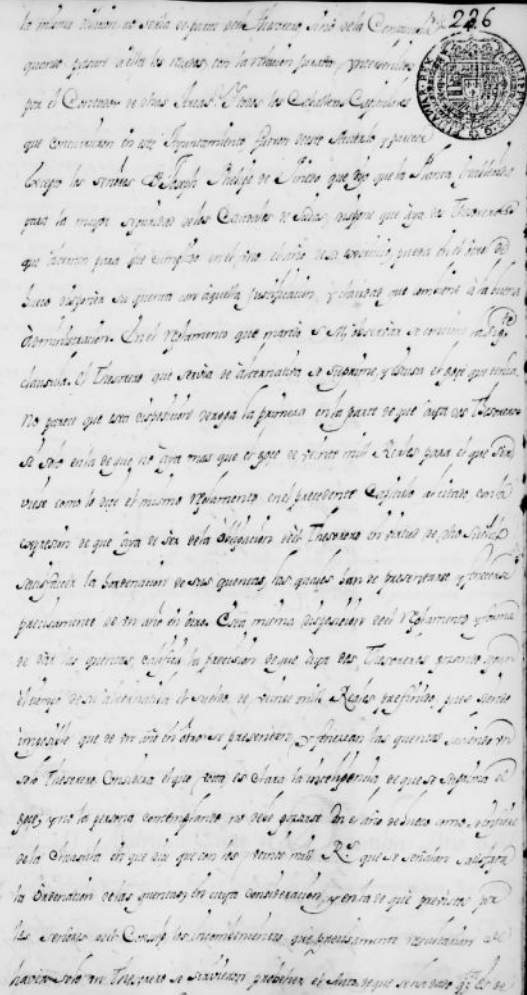 226
la misma no seria de parte del Thesorero sino de la
quando pasare a ella los con la relacion jurada, yntervenidas
por el Contador de dhas Arcas. Y todos los Cavalleros Capitulares
que concurrieron en este Ayuntamiento fueron deste y parecer
excepto los señores Dn Joseph Phelipe de Pinedo que dijo que la Planta establecida
para la mayor seguridad de los Caudales de Sisas, dispone que aya dos Thesoreros
que alternen para que cumplido en el año de su exercicio, pueda en el otro de
hueco disponer su quenta con aquella justificacion, y claridad que combiene a la buena
Administracion. En el Reglamento que mandó S. M. se contiene la sigte
clausula. El Thesorero que servia de alternativa se suprime, y escusa el goze que tenia,
No parece que esta disposicion deroga la primera en la parte de que aya dos Thesoreros
sí solo en la de que no aya mas que el goze de veinte mill Reales para el que sir-
viese como lo dize el mismo Reglamento en el precedente Capitulo al citado, con la
expresion de que aya de ser de la obligacion del Thesorero en virtud de dho sueldo
satisfacer la hordenacion de sus quentas, las quales han de presentarse y fenecerse
precisamente de un año en otro. Esta misma disposicion del Reglamento y forma
de dar las quentas, califica la precision de que aya dos Thesoreros gozando
el tiempo de su alternativa el sueldo de veinte mill Reales prefinido, pues siendo
imposible que de un año en otro se presenten, y fenezcan las quentas haviendo un
solo Thesorero, Considera el que vota, es clara la inteligencia, de que se suprima el
goze, y no la persona contemplando no deve gozarse en el año de hueco como
de la Clausula en que dize que con los veinte mill Rs que se señalan satisfaga
la ordenacion de las quentas, en cuya consideracion, y en la de que previstos por
los señores del Consejo los incombenientes, que precisamente resultarian de
haver solo un Thesorero se sirvieron el Auto de que se ha dado qta es de